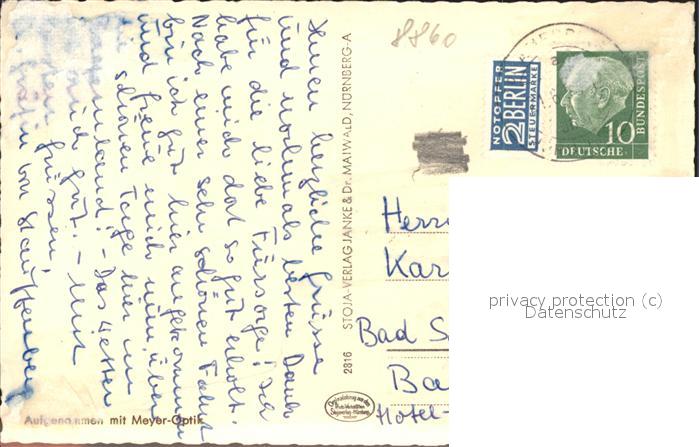 Ihnen herzliche Grüsse
und nochmals besten Dank
für die liebe Fürsorge! Ich
habe mich dort so gut erholt.
Nach einer sehr schönen Fahrt
bin ich gut hier angekommen
und freue mich nun über
die schönen Tage hier im
! - Das Wetter
auch gut. - Mit
Grüssen
Gräfin von Stauffenberg
Aufgenommen mit Meyer-Optik
2816 STOJA-VERLAG JANKE & Dr. MAIWALD, NÜRNBERG-A
8860
NOTOPFER
2 BERLIN
STEUERMARKE
10
DEUTSCHE
BUNDESPOST
Herr
Kar
Bad S
Ba
Hotel-
privacy protection (c)
Datenschutz